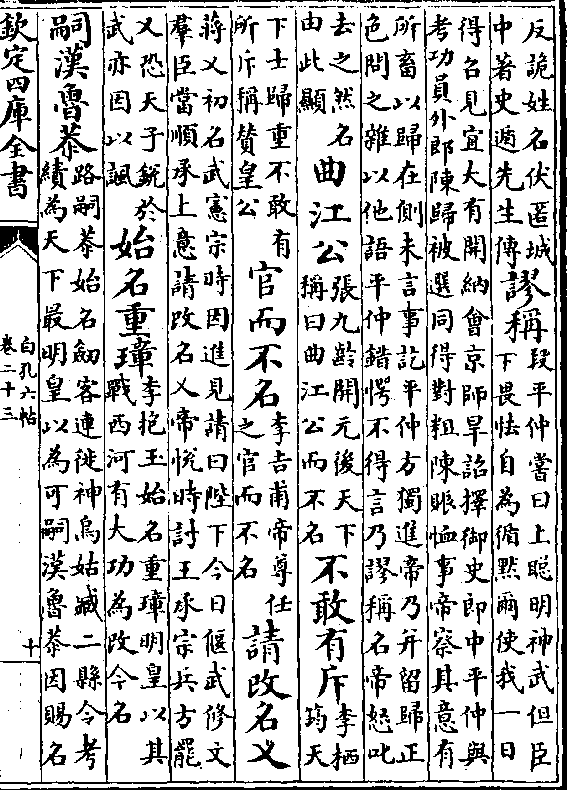 反詭姓名伏匿城
中著史遁先生傳
謬稱
段平仲嘗曰上聰明神武但臣
下畏怯自為循黙爾使我一日
得召見宜大有開納㑹京師旱詔擇御史郎中平仲與
考功員外郎陳歸被選同得對粗陳賑恤事帝察其意有
所畜以歸在側未言事訖平仲方獨進帝乃并留歸正
色問之雜以他語平仲錯愕不得言乃謬稱名帝怒叱
去之然名
由此顯
曲江公
張九齡開元後天下
稱曰曲江公而不名
不敢有斥
李栖
筠天
下士歸重不敢有
所斥稱贊皇公
官而不名
李吉甫帝尊任
之官而不名
請改名乂
蔣乂初名武憲宗時因進見請曰陛下今日偃武修文
羣臣當順承上意請改名乂帝悦時討王承宗兵方罷
乂恐天子銳於
武亦因以諷
始名重璋
李抱玉始名重璋明皇以其
戰西河有大功為改今名
嗣漢魯恭
路嗣恭始名劒客連徙神烏姑臧二縣令考
績為天下最明皇以為可嗣漢魯恭因賜名
欽定四庫全書
白孔六帖
卷二十三
十